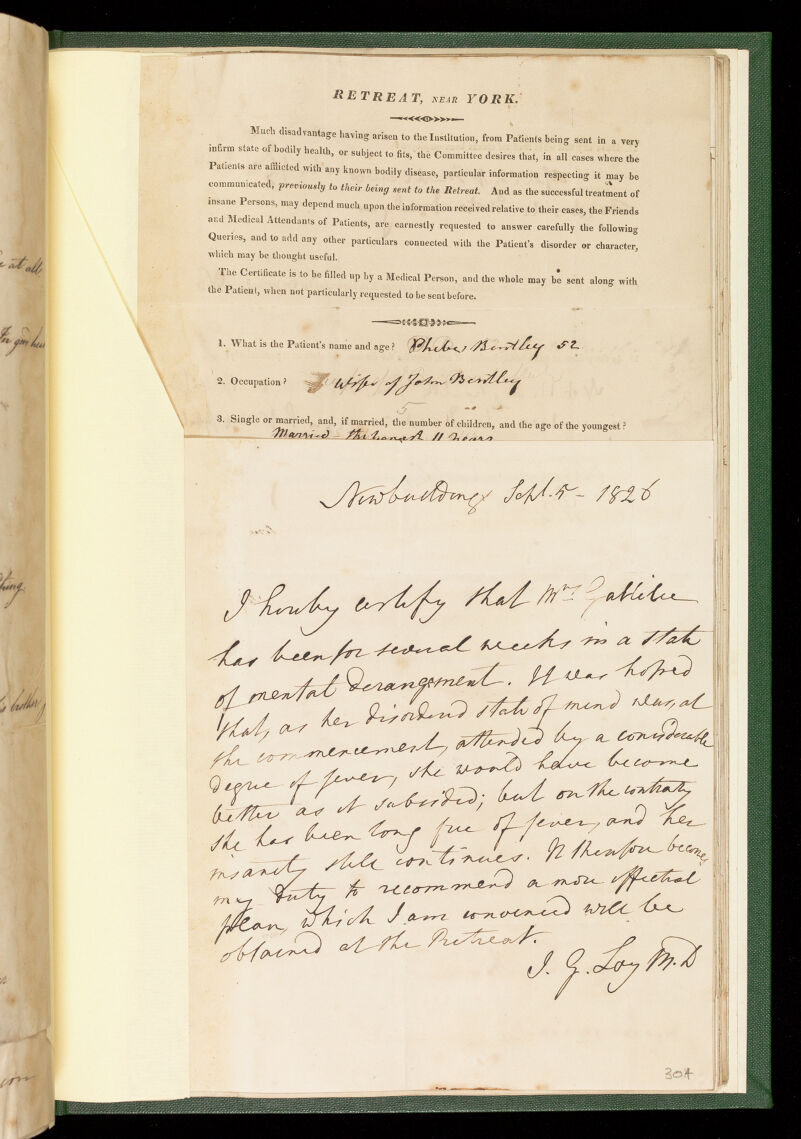 RETREAT, NEAR YORK.
Much disadvantage having arisen to the Institution, from Patients being sent in a very
infirm state of bodily health, or subject to fits, the Committee desires that, in all cases where the
Patients are afflicted with any known bodily disease, particular information respecting it may be
communicated, previously to their being sent to the Retreat. And as the successful treatment of
insane Persons, may depend much upon the information received relative to their cases, the Friends
and Medical Attendants of Patients, are earnestly requested to answer carefully the following
Queries, and to add any other particulars connected with the Patient's disorder or character,
which may be thought useful.
The Certificate is to be filled up by a Medical Person, and the whole may be sent along with
the Patient, when not particularly requested to be sent before.
1. What is the Patient's name and age? Phebe Bentley 52
2. Occupation? Wife of John Bentley
5
3. Single or married, and, if married, the number of children, and the age of the youngest?
Married 11 years
Newbuilding Sept. 5 - 1826
I hereby certify that Mrs. Gallilee
has been for several weeks in a state
of mental derangement. It was hoped
that, as her disordered state of mind was, at
the commencement, attended by a considerable
degree of fever, she would have become
better as it subsided; but on the contrary
she has been long free of fever, and her
insanity still continues. It therefore becomes
my duty to recommend a more effectual
plan, which I am convinced will be
obtained at the Retreat.
J. G. Loy M.D
304
e at all
thing
s brother